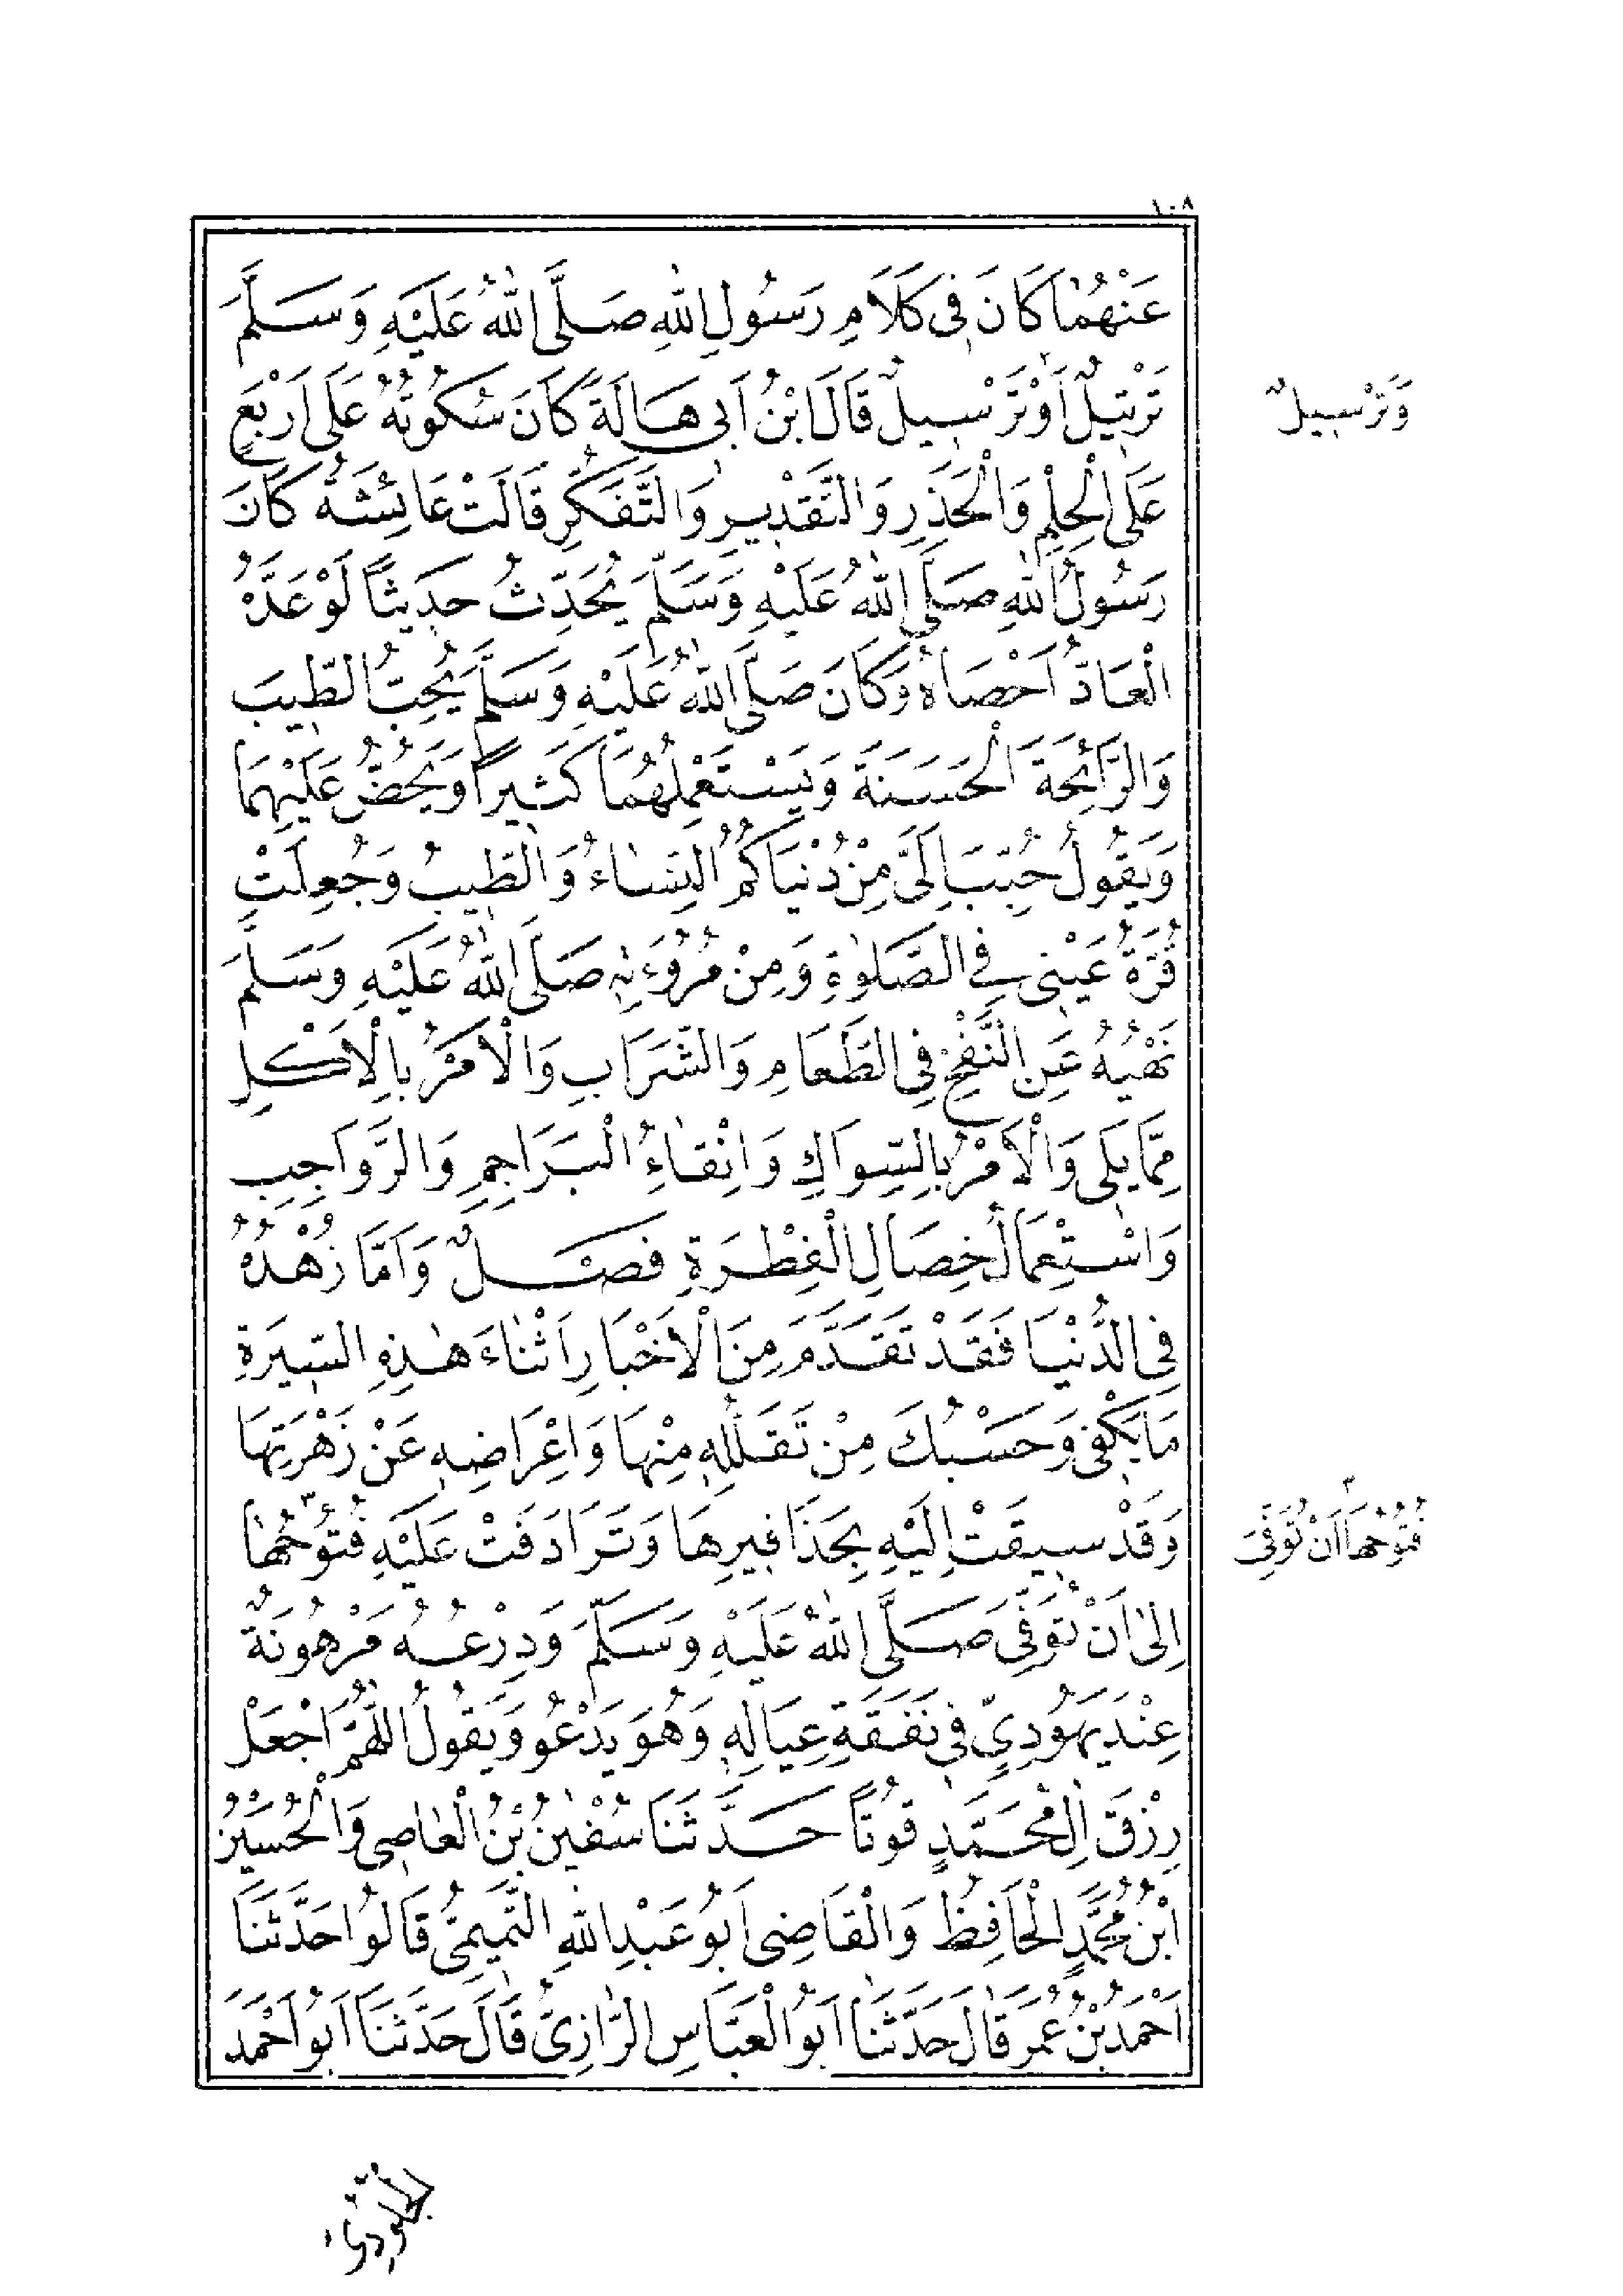 ١٠٨
عَنْهُمَا كَانَ فِى كَلَامِ رَسُولِ اللّٰهِ صَلَّى اللّٰهُ عَلَيْهِ وَسَلَّمَ
تَرْتِيلٌ اَوْ تَرْسِيلٌ قَالَ ابْنُ اَبِى هَالَةَ كَانَ سُكُوتُهُ عَلَى اَرْبَعٍ
وَتَرْسِيلٌ
عَلَى الْحِلْمِ وَالْحَذَرِ وَالتَّقْدِيرِ وَالتَّفَكُّرِ قَالَتْ عَائِشَةُ كَانَ
رَسُولُ اللّٰهِ صَلَّى اللّٰهُ عَلَيْهِ وَسَلَّمَ يُحَدِّثُ حَدِيثاً لَوْ عَدَّهُ
الْعَادُّ اَحْصَاهُ وَكَانَ صَلَّى اللّٰهُ عَلَيْهِ وَسَلَّمَ يُحِبُّ الطِّيبَ
وَالرَّائِحَةَ الْحَسَنَةَ وَيَسْتَعْمِلُهُمَا كَثِيراً وَيَحُضُّ عَلَيْهِمَا
وَيَقُولُ حُبِّبَ اِلَىَّ مِنْ دُنْيَاكُمُ النِّسَاءُ وَالطِّيبُ وَجُعِلَتْ
قُرَّةُ عَيْنِى فِى الصَّلٰوةِ وَمِنْ مُرُوءَتِهِ صَلَّى اللّٰهُ عَلَيْهِ وَسَلَّمَ
نَهْيُهُ عَنِ النَّفْخِ فِى الطَّعَامِ وَالشَّرَابِ وَالْاَمْرُ بِالْاَكْلِ
مِمَّا يَلِى وَالْاَمْرُ بِالسِّوَاكِ وَاِنْقَاءُ الْبَرَاجِمِ وَالرَّوَاجِبِ
وَاسْتِعْمَالُ خِصَالِ الْفِطْرَةِ فَصْلٌ وَاَمَّا زُهْدُهُ
فِى الدُّنْيَا فَقَدْ تَقَدَّمَ مِنَ الْاَخْبَارِ اَثْنَاءَ هٰذِهِ السِّيرَةِ
مَا يَكْفِى وَحَسْبُكَ مِنْ تَقَلُّلِهِ مِنْهَا وَاِعْرَاضِهِ عَنْ زَهْرَتِهَا
وَقَدْ سِيقَتْ اِلَيْهِ بِحَذَافِيرِهَا وَتَرَادَفَتْ عَلَيْهِ فُتُوحُهَا
فُتُوحُهَا اَنْ تُوُفِّىَ
اِلٰى اَنْ تُوُفِّىَ صَلَّى اللّٰهُ عَلَيْهِ وَسَلَّمَ وَدِرْعُهُ مَرْهُونَةٌ
عِنْدَ يَهُودِىٍّ فِى نَفَقَةِ عِيَالِهِ وَهُوَ يَدْعُو وَيَقُولُ اللّٰهُمَّ اجْعَلْ
رِزْقَ اٰلِ مُحَمَّدٍ قُوتاً حَدَّثَنَا سُفْيٰنُ بْنُ الْعَاصِى وَالْحُسَيْنُ
ابْنُ مُحَمَّدٍ الْحَافِظُ وَالْقَاضِى اَبُو عَبْدِ اللّٰهِ التَّمِيمِىُّ قَالُوا حَدَّثَنَا
اَحْمَدُ بْنُ عُمَرَ قَالَ حَدَّثَنَا اَبُو الْعَبَّاسِ الرَّازِىُّ قَالَ حَدَّثَنَا اَبُو اَحْمَدَ
الْجُلُودِىُّ